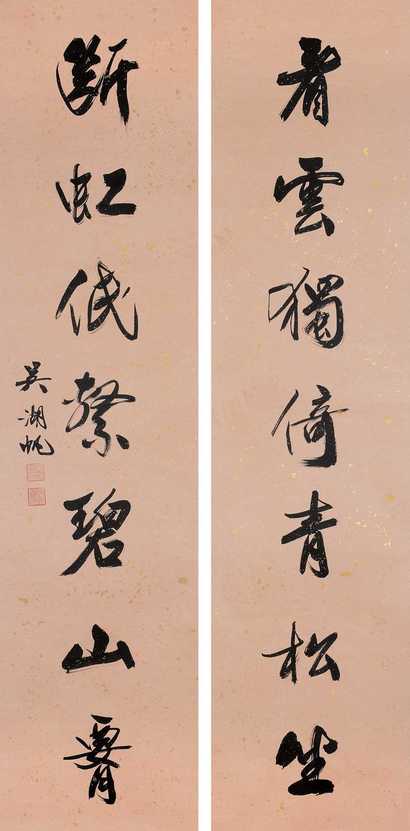 看雲獨倚青松坐
斷虹低繫碧山腰
吳湖帆